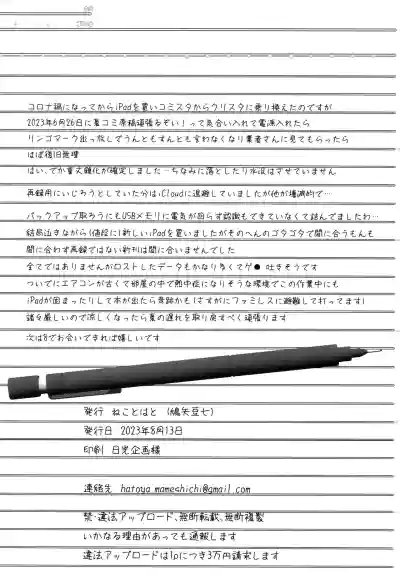 コロナ禍になってからiPadを買いコミスタからクリスタに乗り換えたのですが
2023年6月26日に夏コミ原稿頑張るぞい！って気合い入れて電源入れたら
リンゴマーク出っ放しでうんともすんとも言わなくなり業者さんに見てもらったら
ほぼ復旧無理
はい、でか重大難化が確定しました…ちなみに落としたり水没はさせていません
再録用にいじろうとしていた分はiCloudに退避していましたが他が壊滅的で…
バックアップ取ろうにもUSBメモリに電気が回らず認識もできていなくて詰んでましたわ…
結局泣きながら(値段に)新しいiPadを買いましたがそのへんのゴタゴタで間に合うもんも
間に合わず再録ではない新刊は間に合いませんでした
全てではありませんがロストしたデータもかなり多くてゲ● 吐きそうです
ついでにエアコンが古くて部屋の中で熱中症になりそうな環境でこの作業中にも
iPadが固まったりして本が出たら奇跡かも(さすがにファミレスに避難して打ってます)
諸々厳しいので涼しくなったら夏の遅れを取り戻すべく頑張ります
次は8でお会いできれば嬉しいです
発行 ねことはと (鳩矢豆七)
発行日 2023年8月13日
印刷 日光企画様
連絡先 hatoya.mameshichi@gmail.com
禁・違法アップロード、無断転載、無断複製
いかなる理由があっても通報します
違法アップロードは1pにつき3万円請求します